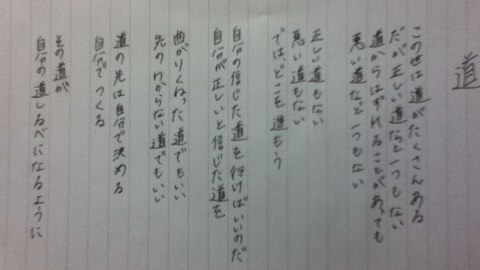 道
この世は道がたくさんある
だが正しい道など一つもない
道からはずれることがあっても
悪い道など一つもない
正しい道もない
悪い道もない
では、どこを進もう
自分の信じた道を行けばいいのだ
自分が正しいと信じた道を
曲がりくねった道でもいい
先のわからない道でもいい
道の先は自分で決める
自分でつくる
その道が
自分の道しるべになるように